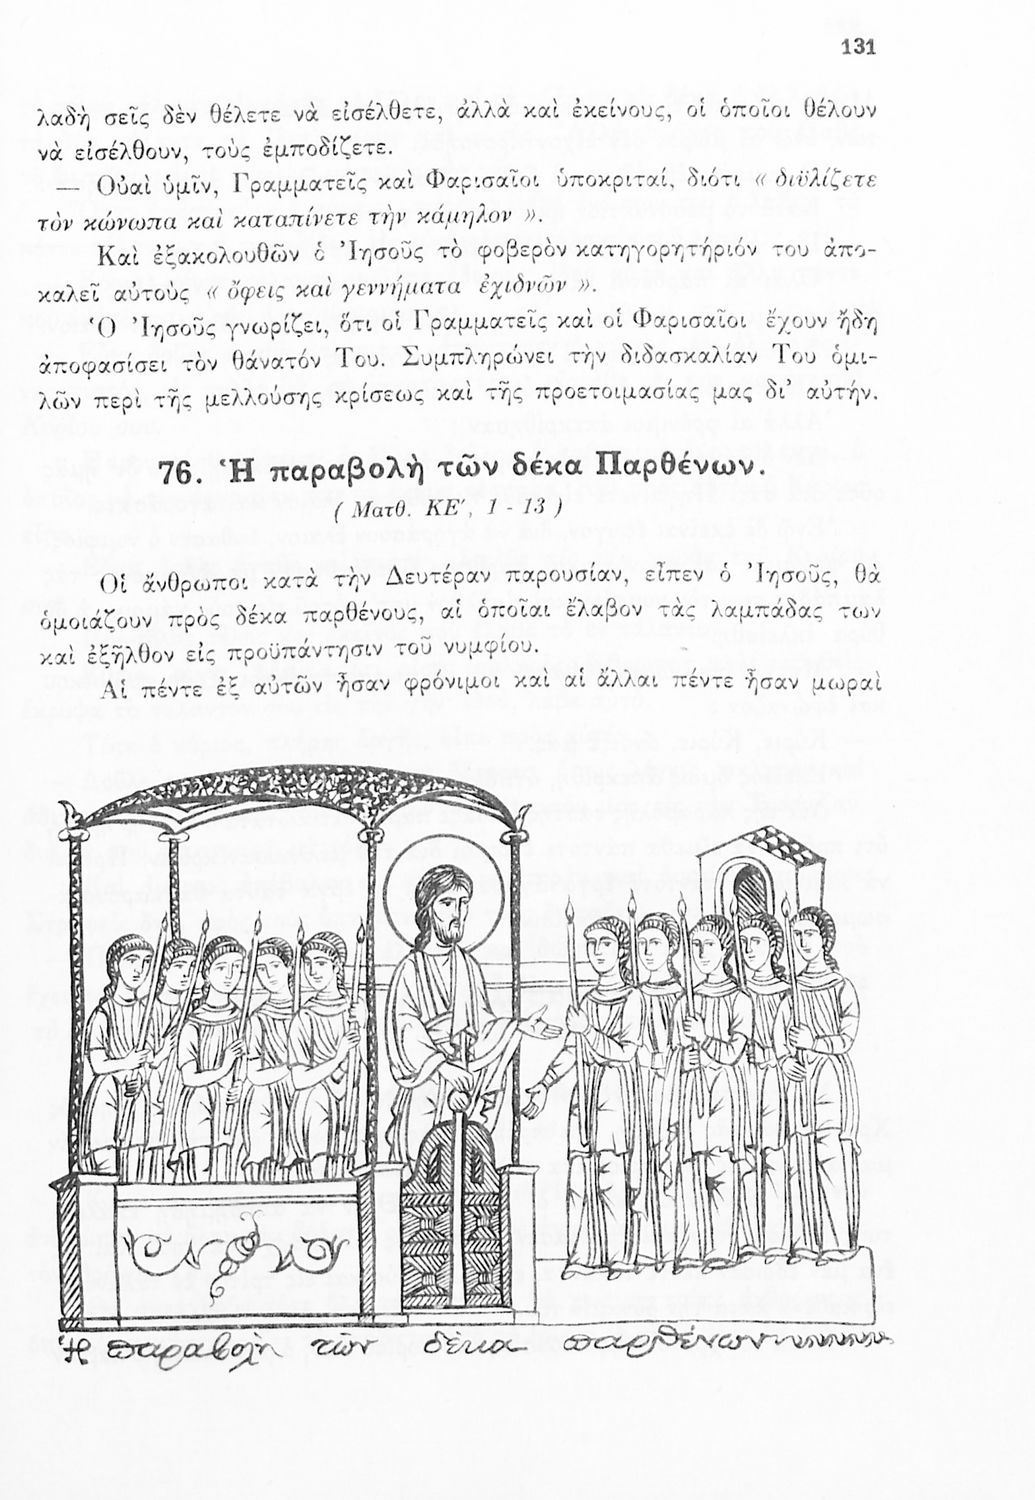 131
λαδὴ σεῖς δὲν θέλετε νὰ εἰσέλθετε, ἀλλὰ καὶ ἐκείνους, οἱ ὁποῖοι θέλουν
νὰ εἰσέλθουν, τοὺς ἐμποδίζετε.
— Οὐαὶ ὑμῖν, Γραμματεῖς καὶ Φαρισαῖοι ὑποκριταί, διότι « διϋλίζετε
τὸν κώνωπα καὶ καταπίνετε τὴν κάμηλον ».
Καὶ ἐξακολουθῶν ὁ Ἰησοῦς τὸ φοβερὸν κατηγορητήριόν του ἀπο-
καλεῖ αὐτοὺς « ὄφεις καὶ γεννήματα ἐχιδνῶν ».
Ὁ Ἰησοῦς γνωρίζει, ὅτι οἱ Γραμματεῖς καὶ οἱ Φαρισαῖοι ἔχουν ἤδη
ἀποφασίσει τὸν θάνατόν Του. Συμπληρώνει τὴν διδασκαλίαν Του ὁμι-
λῶν περὶ τῆς μελλούσης κρίσεως καὶ τῆς προετοιμασίας μας δι’ αὐτήν.
76. Ἡ παραβολὴ τῶν δέκα Παρθένων.
( Ματθ. ΚΕ′, 1 - 13 )
Οἱ ἄνθρωποι κατὰ τὴν Δευτέραν παρουσίαν, εἶπεν ὁ Ἰησοῦς, θὰ
ὁμοιάζουν πρὸς δέκα παρθένους, αἱ ὁποῖαι ἔλαβον τὰς λαμπάδας των
καὶ ἐξῆλθον εἰς προϋπάντησιν τοῦ νυμφίου.
Αἱ πέντε ἐξ αὐτῶν ἦσαν φρόνιμοι καὶ αἱ ἄλλαι πέντε ἦσαν μωραὶ
Ἡ παραβολὴ τῶν δέκα παρθένων